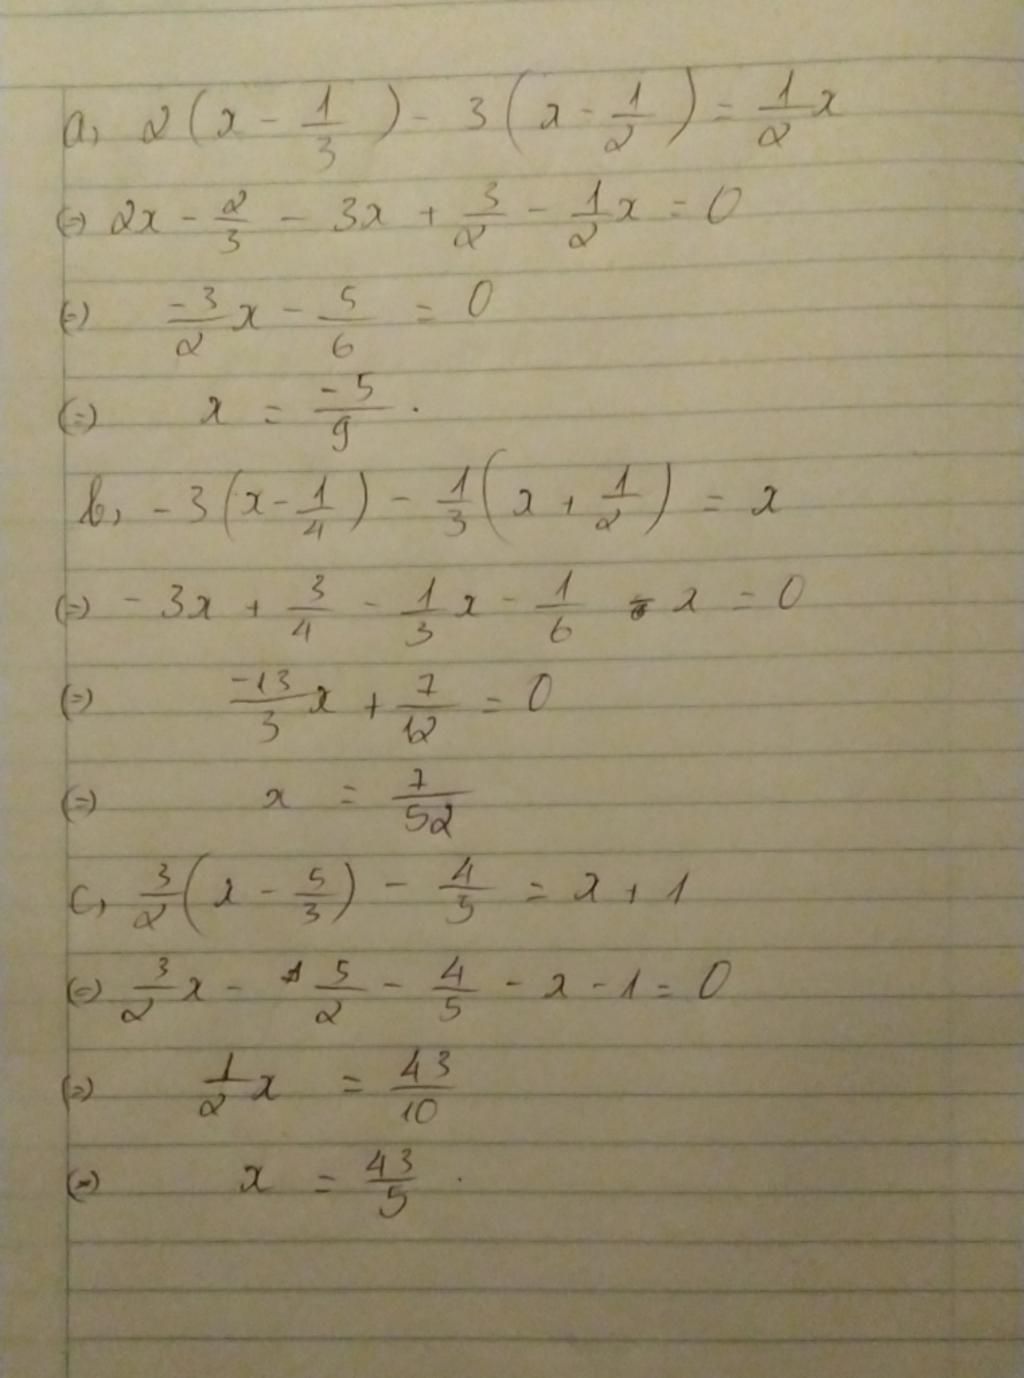 a, 2(x - 1/3) - 3(x - 1/2) = 1/2 x
(=) 2x - 2/3 - 3x + 3/2 - 1/2 x = 0
(=) -3/2 x - 5/6 = 0
(=) x = -5/9 .
b, -3(x - 1/4) - 1/3(x + 1/2) = x
(=) -3x + 3/4 - 1/3 x - 1/6 - x = 0
(=) -13/3 x + 7/12 = 0
(=) x = 7/52
c, 3/2(x - 5/3) - 4/5 = x + 1
(=) 3/2 x - 5/2 - 4/5 - x - 1 = 0
(=) 1/2 x = 43/10
(=) x = 43/5 .